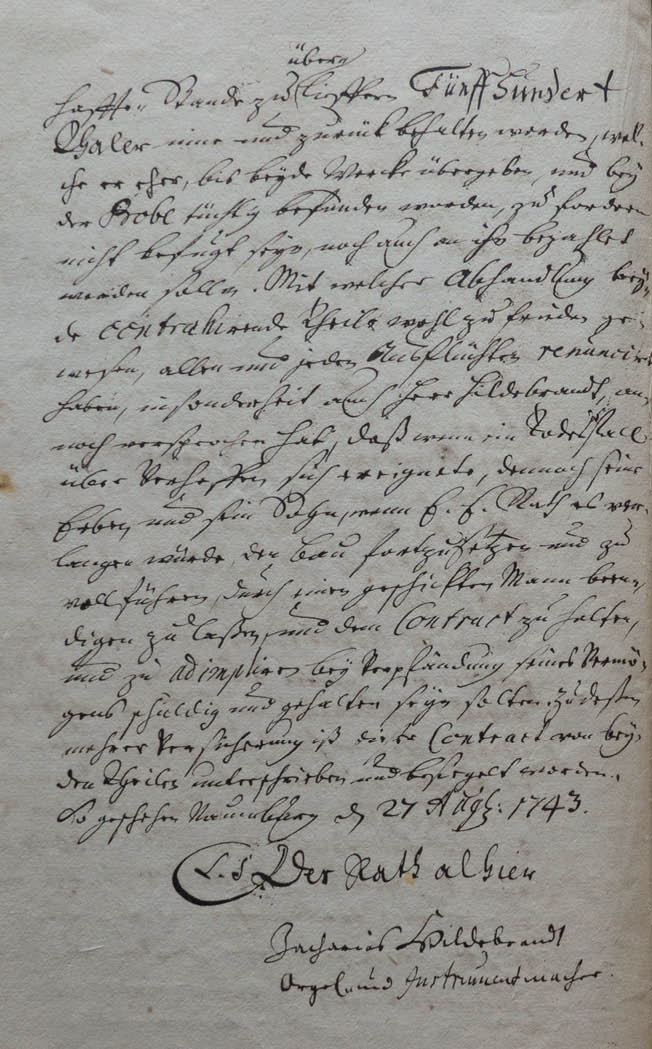 über
hafften Stande zu lieffern Fünffhundert
Thaler inne und zurück behalten werden, wel-
che er eher, bis beyde Wercke übergeben, und bey
der Probe tüchtig befunden worden, zu fordern
nicht befugt seyn, noch auch an ihn bezahlet
werden sollen. Mit welcher Abhandlung bey-
de contrahirende Theile wohl zufrieden ge-
wesen, allen und jeden Ausflüchten renunciret
haben, insonderheit auch Herr Hildebrandt, an-
noch versprochen hat, daß wenn ein Todesfall
über Verhoffen sich ereignete, dennoch seine
Erben, und sein Sohn, wenn E. E. Rath es ver-
langen würde, den Bau fortzusetzen und zu
vollführen, durch einen geschickten Mann been-
digen zu laßen, und dem Contract zu halten,
und zu adimpliren bey Verpfändung seines Vermö-
gens schuldig und gehalten seyn solten. Zu deßen
mehrer Versicherung ist dieser Contract von bey-
den Theilen unterschrieben und besiegelt worden.
So geschehen Naumburg d 27 Augh: 1743.
L. S. Der Rath alhier
Zacharias Hildebrandt
Orgel und Instrumentmacher.